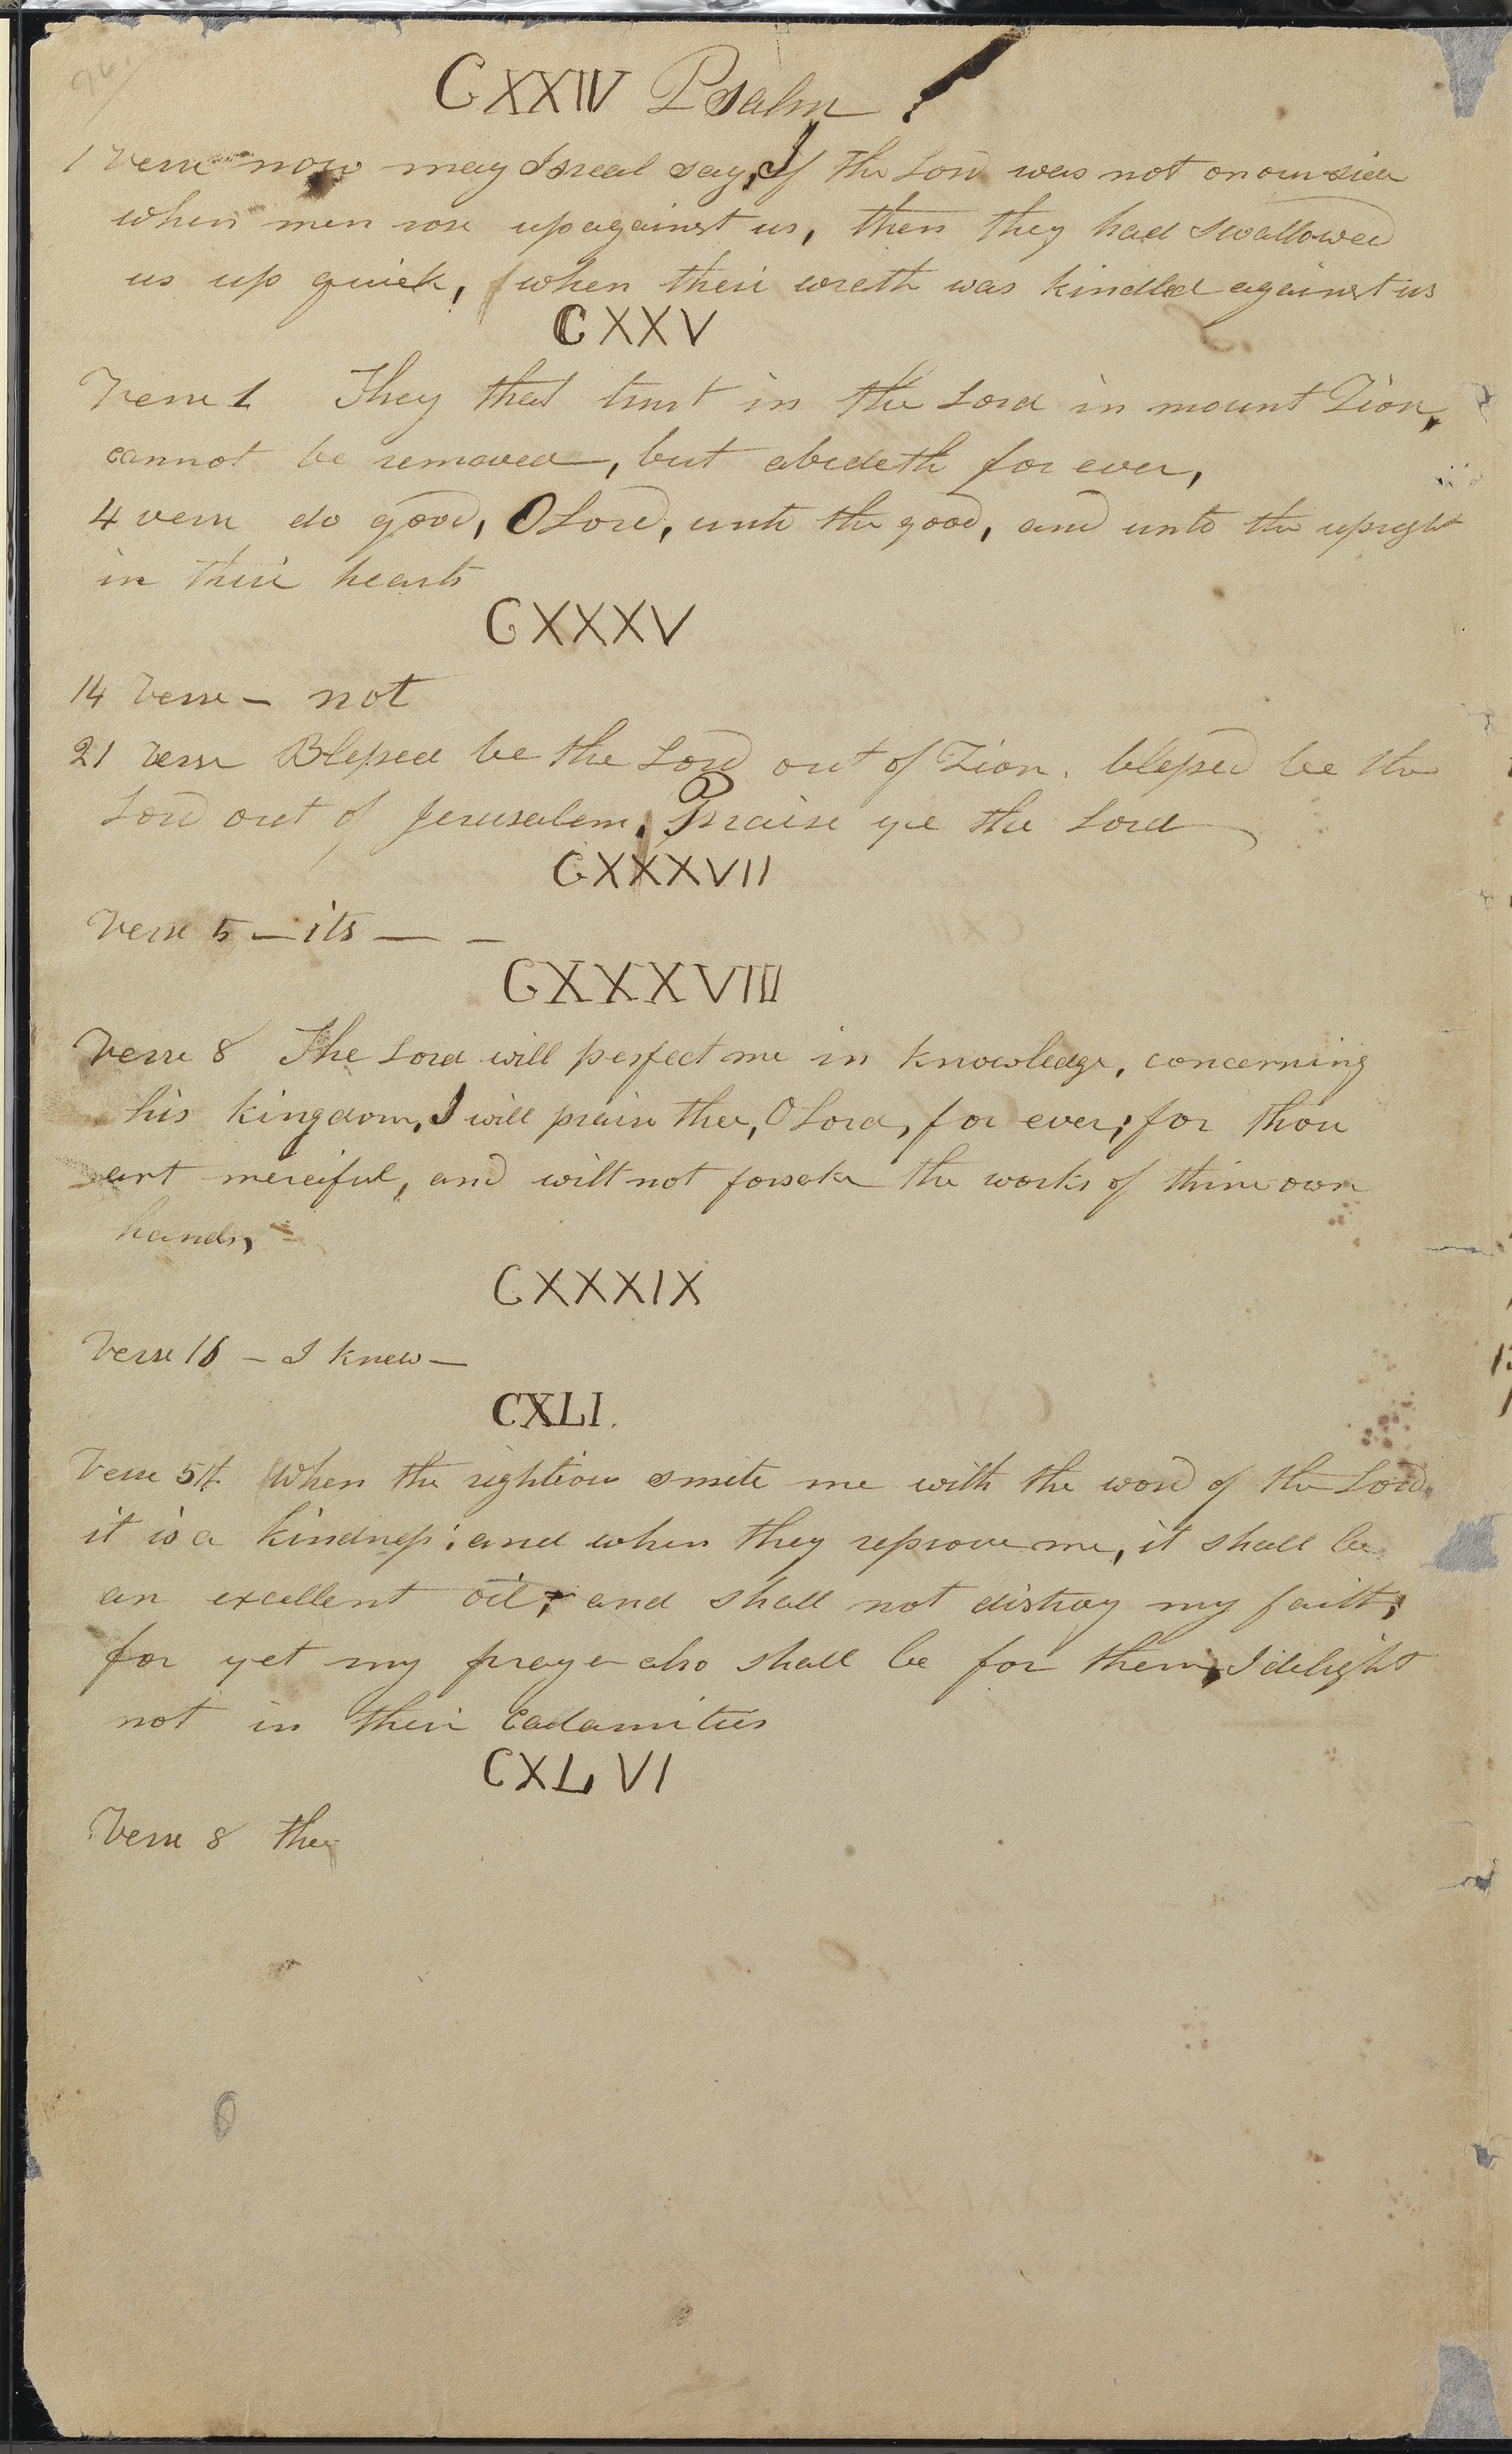 CXXIV Psalm
1 Verse now may Isreal say, If the Lord was not on our side
when men rose up against us, then they had swallowed
us up quick, when their wrath was kindled against us
CXXV
Verse 1 They that trust in the Lord in mount Zion,
cannot be removed, but abideth for ever,
4 verse do good, O Lord, unto the good, and unto the upright
in their hearts
CXXXV
14 Verse – not
21 verse Blessed be the Lord out of Zion. blessed be the
Lord out of Jerusalem. Praise ye the Lord
CXXXVII
Verse 5 – its — –
CXXXVIII
Verse 8 The Lord will perfect me in knowledge, concerning
his kingdom, I will praise thee, O Lord, for ever; for thou
art merciful, and wilt not forsake the works of thine own
hands,
CXXXIX
Verse 16 – I knew —
CXLI.
Verse 5th When the righteous smite me with the word of the Lord.
it is a kindness; and when they reprove me, it shall be
an excellent oil; and shall not distroy my faith;
for yet my prayer also shall be for them, I delight
not in their Cadamities
CXLVI
Verse 8 the